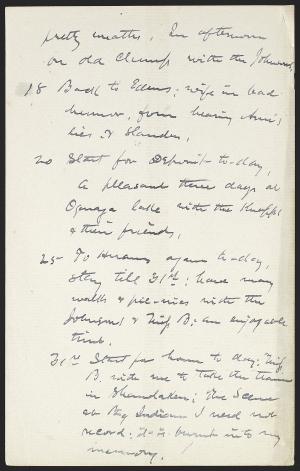 pretty weather. In afternoon
on old Clump with the Johnsons,
18 Back to Edens; wife in bad
humor, from hearing Amie's
lies & slanders,
20 Start for Deposit to-day,
A pleasant three days at
Oquaga lake with the
& their friends,
25 To Hirams again to-day,
stay till 31st; have many
walks & pic-nics with the
Johnsons & Miss B; an enjoyable
time.
31st Start for home to-day; Miss
B. with me to take the train
in Shandaken; The scene
at Big Indian I need not
record; It is burnt into my
memory.